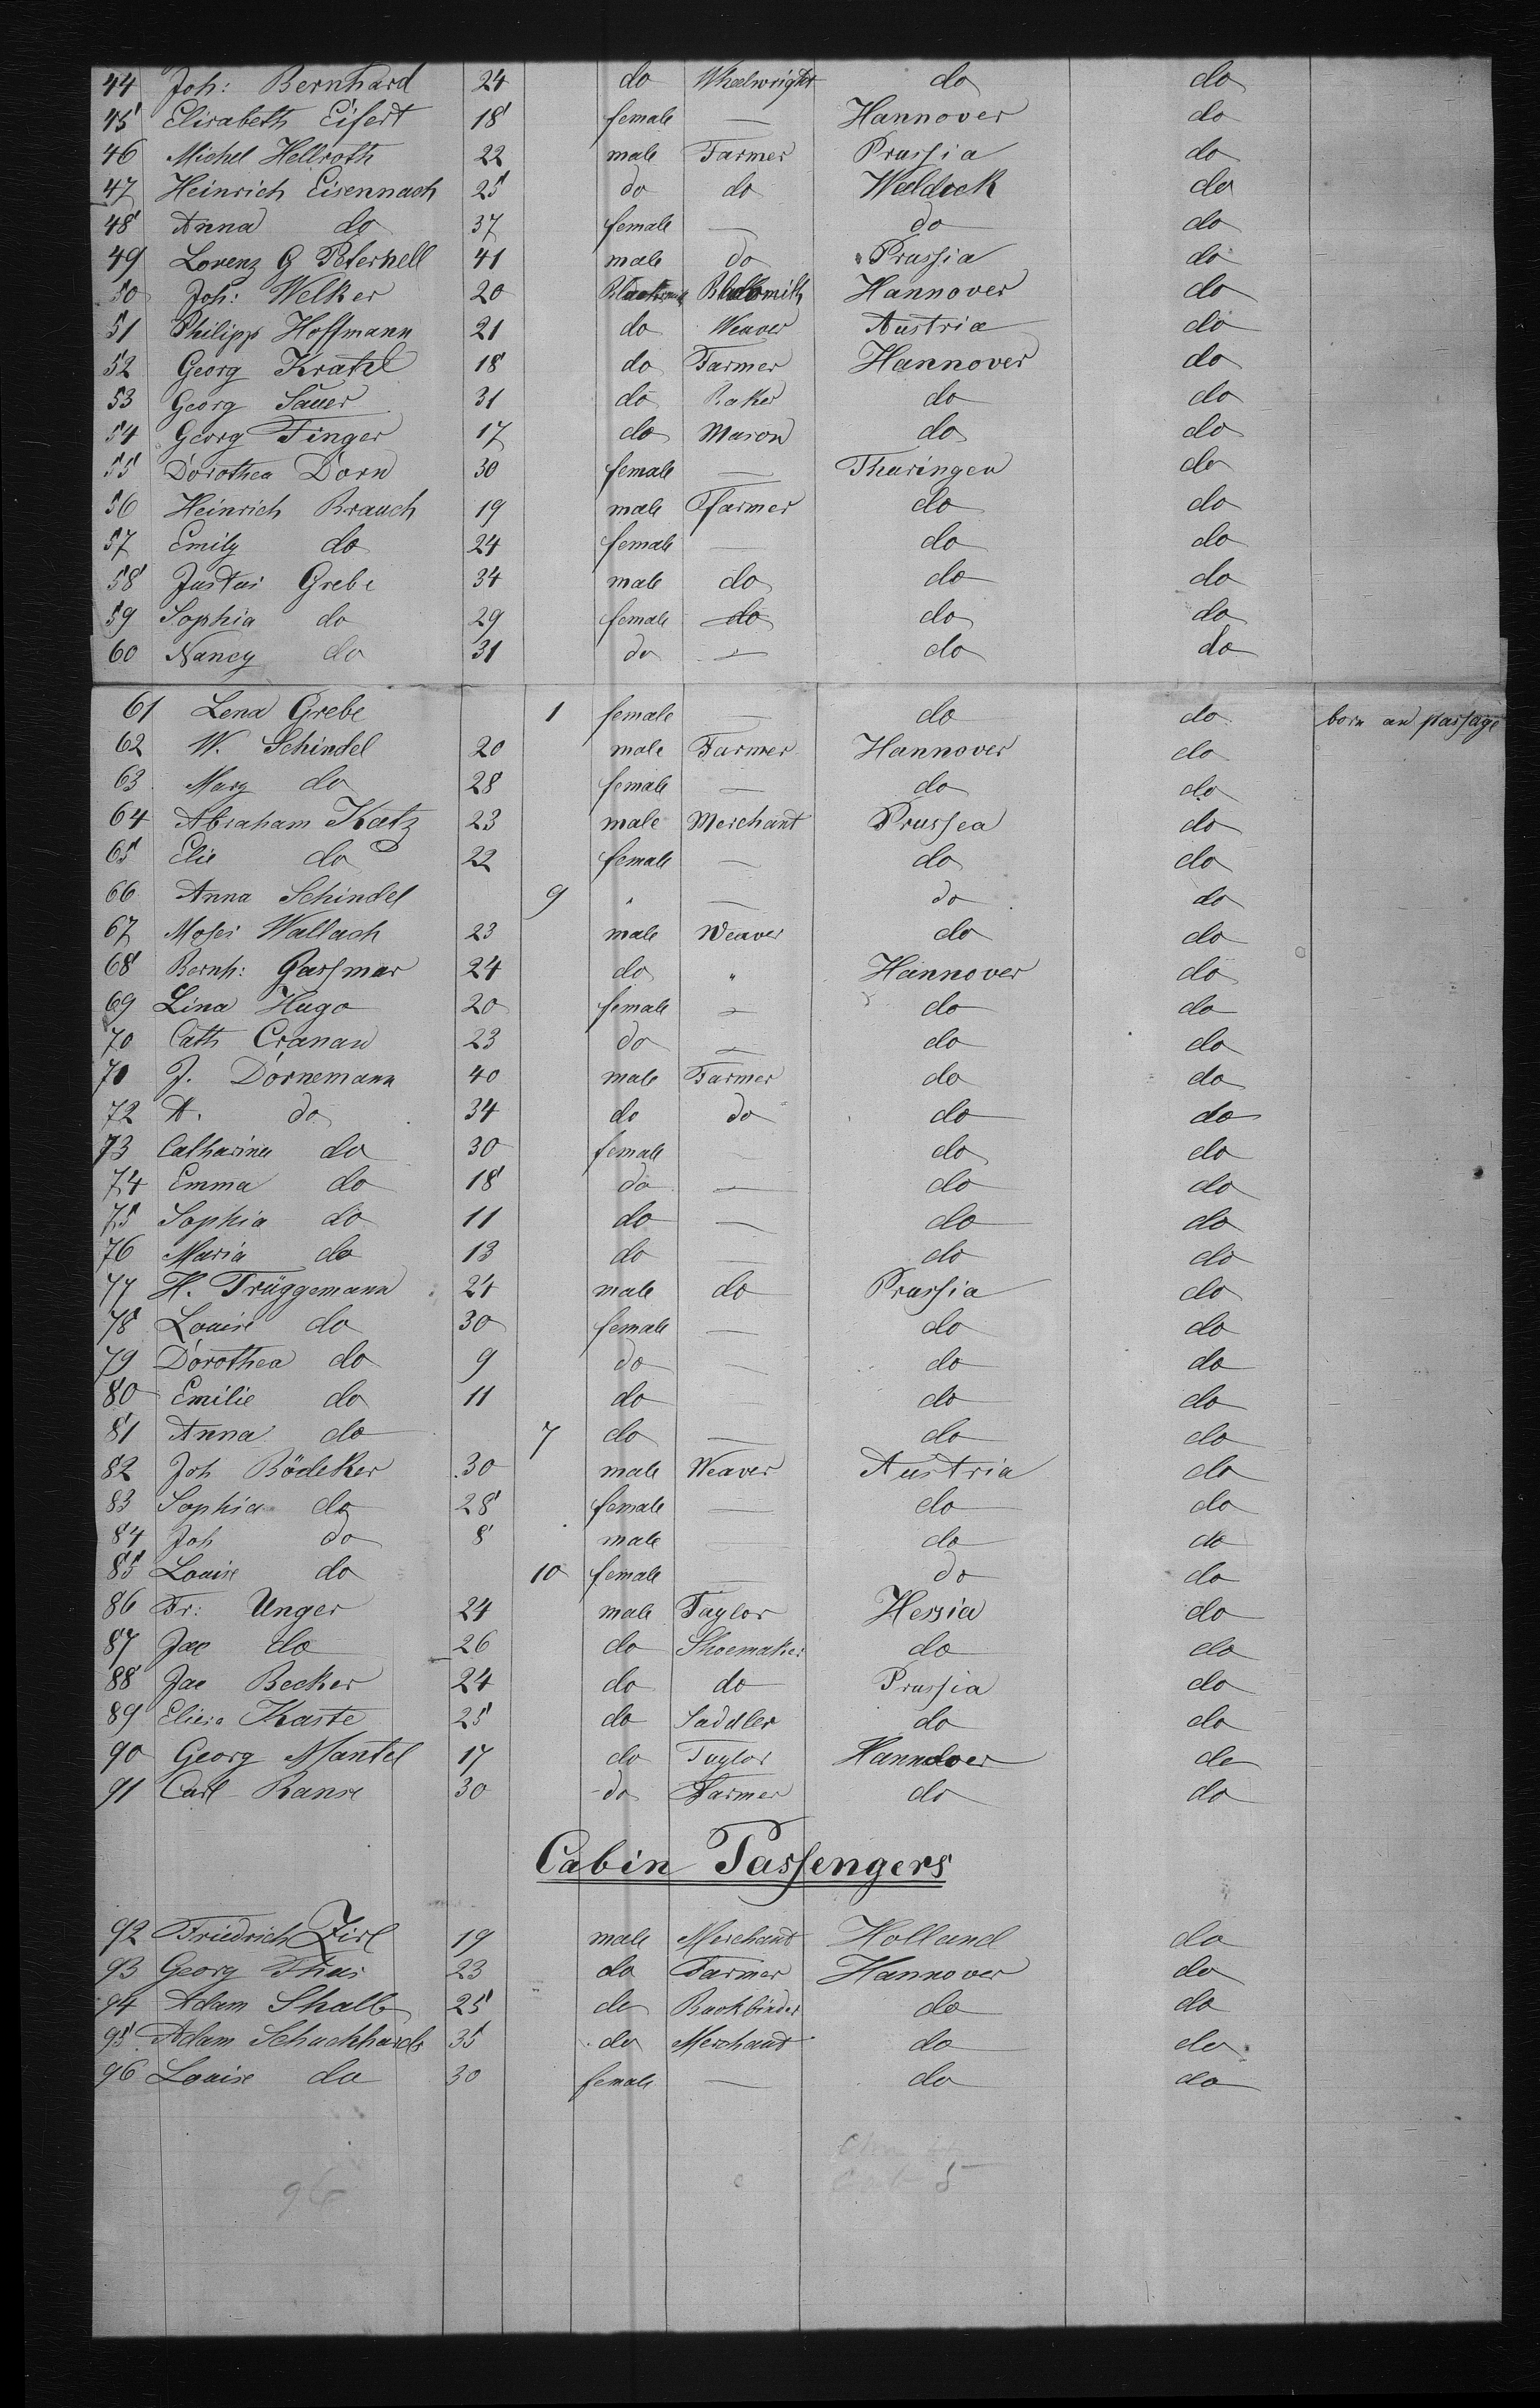 44 Joh: Bernhard 24 do Wheelwright do do
45 Elisabeth Eifert 18 female — Hannover do
46 Michel Hellroth 22 male Farmer Prussia do
47 Heinrich Eisennach 25 do do Waldeck do
48 Anna do 37 female — do do
49 Lorenz G Peternell 41 male do Prussia do
50 Joh: Welker 20 Blacksmith Hannover do
51 Philipp Hoffmann 21 do Weaver Austria do
52 Georg Kratzl 18 do Farmer Hannover do
53 Georg Sauer 31 do Baker do do
54 Georg Finger 17 do Mason do do
55 Dorothea Dorn 30 female — Thuringen do
56 Heinrich Brauch 19 male Farmer do do
57 Emily do 24 female — do do
58 Justus Grebe 34 male do do do
59 Sophia do 29 female do do do
60 Nancy do 31 do — do do
61 Lena Grebe 1 female — do do born an passage
62 W. Schindel 20 male Farmer Hannover do
63 Mary do 28 female — do do
64 Abraham Katz 23 male Merchant Prussea do
65 Elie do 22 female — do do
66 Anna Schindel 9 " — do do
67 Moses Wallach 23 male Weaver do do
68 Bernh: Gassmar 24 do " Hannover do
69 Lina Hugo 20 female — do do
70 Cath Cranau 23 do — do do
70 J. Dornemann 40 male Farmer do do
72 A. do 34 do do do do
73 Catharina do 30 female — do do
74 Emma do 18 do — do do
75 Sophia do 11 do — do do
76 Maria do 13 do — do do
77 H. Trüggemann 24 male do Prussia do
78 Louise do 30 female — do do
79 Dorothea do 9 do — do do
80 Emilie do 11 do — do do
81 Anna do 7 do — do do
82 Joh Bödeker 30 male Weaver Austria do
83 Sophia do 28 female — do do
84 Joh do 8 male — do do
85 Louise do 10 female — do do
86 Fr: Unger 24 male Taylor Hessia do
87 Jac do 26 do Shoemaker do do
88 Jac Becker 24 do do Prussia do
89 Eliesa Kaste 25 do Saddler do do
90 Georg Mantel 17 do Taylor Hannover do
91 Carl Ranse 30 do Farmer do do
Cabin Passengers
92 Friedrich Zirl 19 male Merchant Holland do
93 Georg Thus 23 do Farmer Hannover do
94 Adam Shalb 25 do Bookbinder do do
95 Adam Schuckhardt 35 do Merchant do do
96 Louise do 30 female — do do
5
96